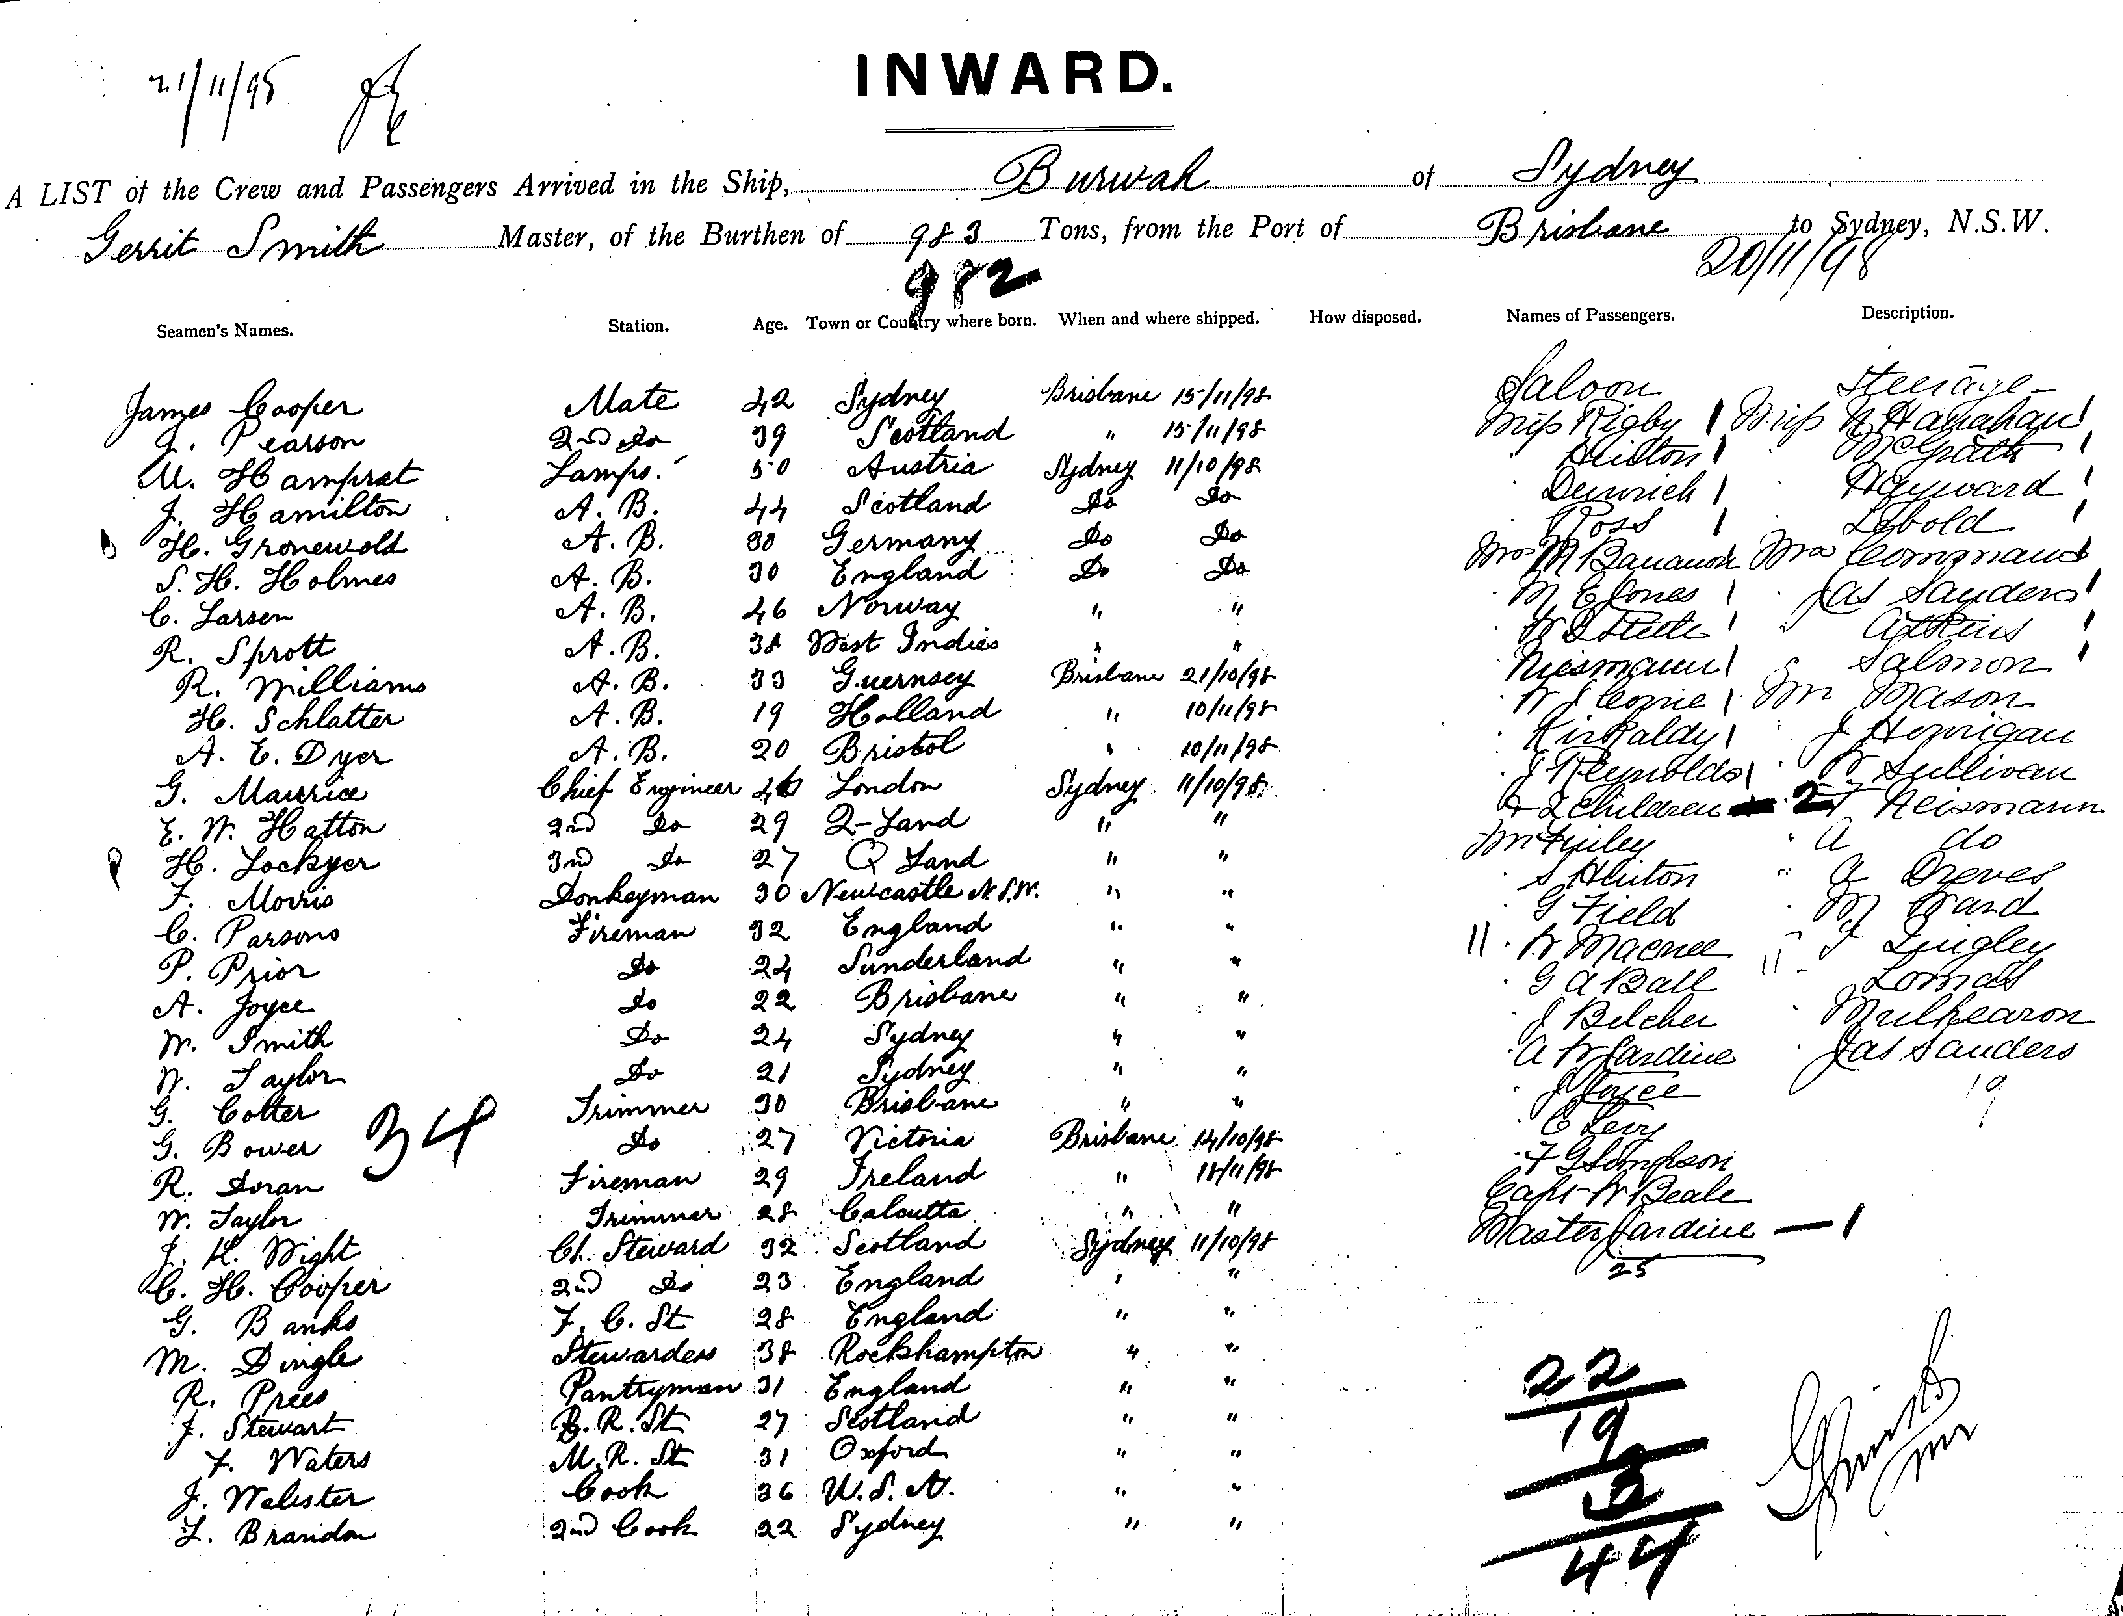 INWARD.
21/11/98
A LIST of the Crew and Passengers Arrived in the Ship, Burwah of Sydney
Gerrit Smith Master, of the Burthen of 983 Tons, from the Port of Brisbane to Sydney, N.S.W.
982 20/11/98
Seamen's Names. Station. Age. Town or Country where born. When and where shipped. How disposed. Names of Passengers. Description.
Saloon Steerage
James Cooper Mate 42 Sydney Brisbane 15/11/98 Miss Rigby 1 Miss N Hanahan 1
J. Pearson 2nd Do 39 Scotland " 15/11/98 Hinton 1 McGrath 1
M. Hamprat Lamps. 50 Austria Sydney 11/10/98 1 Hayward 1
J. Hamilton A. B. 44 Scotland Do Do Ross 1 Lobold 1
H. Gronewold A. B. 30 Germany Do Do Mrs M Mrs
S. H. Holmes A. B. 30 England Do Do M E Jones 1 Jas Sanders 1
C. Larsen A. B. 46 Norway " " Steele 1 Atkins 1
R. Sprott A. B. 38 West Indies " " Niesmann 1 Salmon 1
R. Williams A. B. 33 Guernsey Brisbane 21/10/98 W J 1 Mr Mason
H. Schlatter A. B. 19 Holland " 10/11/98 Kirkaldy 1 J Horrigan
A. E. Dyer A. B. 20 Bristol " 10/11/98 J Reynolds 1 W Sullivan
G. Maurice Chief Engineer 46 London Sydney 11/10/98 & 2 Children — 2 F Neismann
E. W. Hatton 2nd Do 29 Q-Land " " Mr Finley " A do
H. Lockyer 3rd Do 27 Q Land " " S Hinton " A Dreves
F. Morris Donkeyman 30 Newcastle N.S.W. " " G Field M Ward
C. Parsons Fireman 32 England " " 11 W Macnee 11 F Quigley
P. Prior Do 24 Sunderland " " G A Ball Lomas
A. Joyce Do 22 Brisbane " " J Belcher Mulhearon
W. Smith Do 24 Sydney " " A W Jardine Jas Sanders
W. Taylor Do 21 Sydney " " J Joyce 19
G. Cotter Trimmer 30 Brisbane " " C Levy
G. Bower 34 Do 27 Victoria Brisbane 14/10/98 F G Simpson
R. Doran Fireman 29 Ireland " 18/11/98 Capt W Beale
W. Taylor Trimmer 28 Calcutta " " Master Jardine — 1
J. K. Wight Ch. Steward 32 Scotland Sydney 11/10/98 25
C. H. Cooper 2nd Do 23 England " "
G. Banks F. C. St 28 England " "
M. Dingle Stewardess 38 Rockhampton " " 22
R. Prees Pantryman 31 England " "
J. Stewart B. R. St 27 Scotland " " 19
F. Waters M. R. St 31 Oxford " "
J. Webster Cook 36 U.S.A. " " 3
L. Brandon 2nd Cook 22 Sydney " " 44